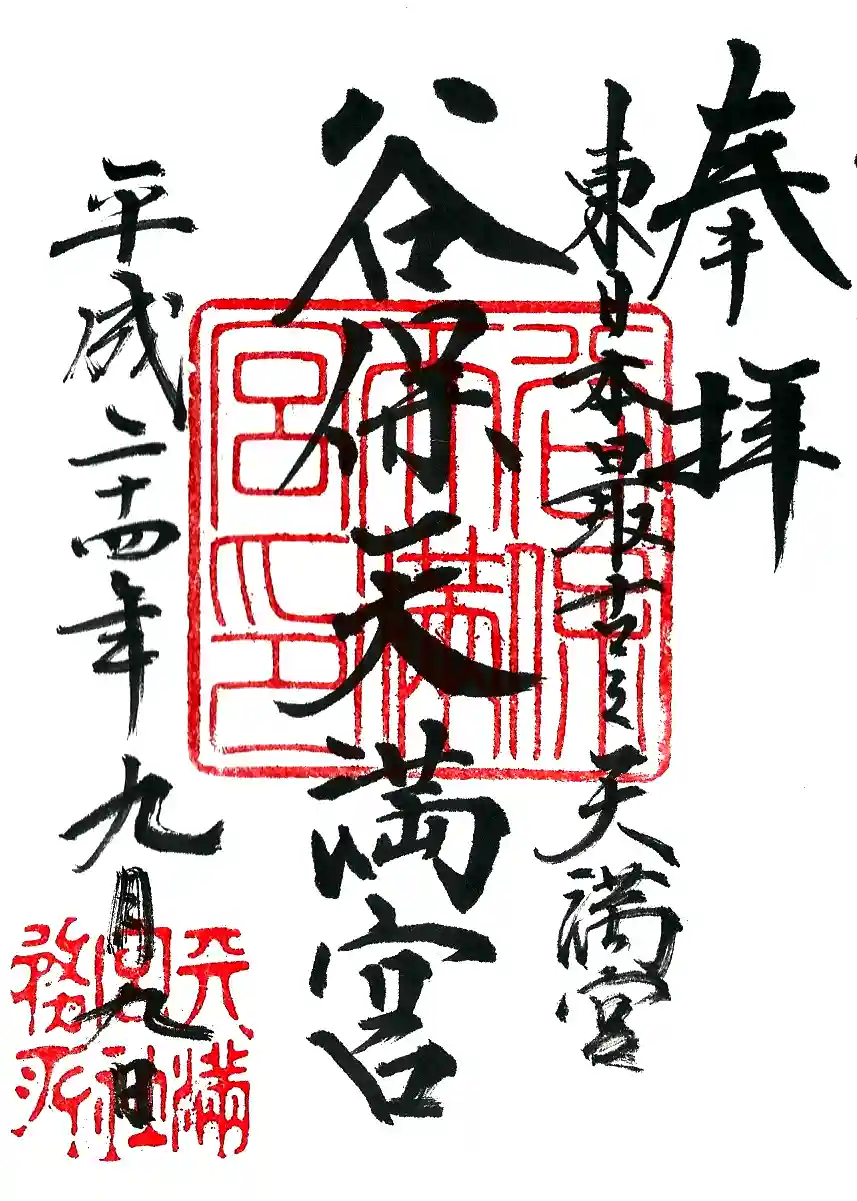 奉拝
東日本最古之天満宮
谷保天満宮
谷保天満宮印
平成二十四年九月九日
天満宮社務所